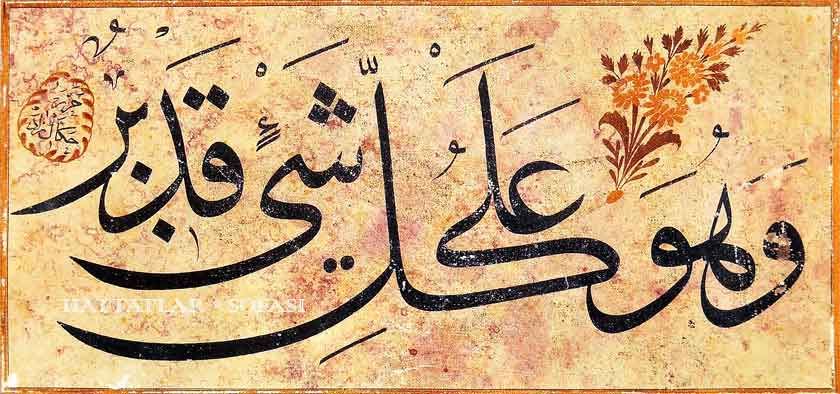 وَهُوَ عَلَى كُلِّ شَيْءٍ قَدِيرٌ
HATTATLAR SOFASI